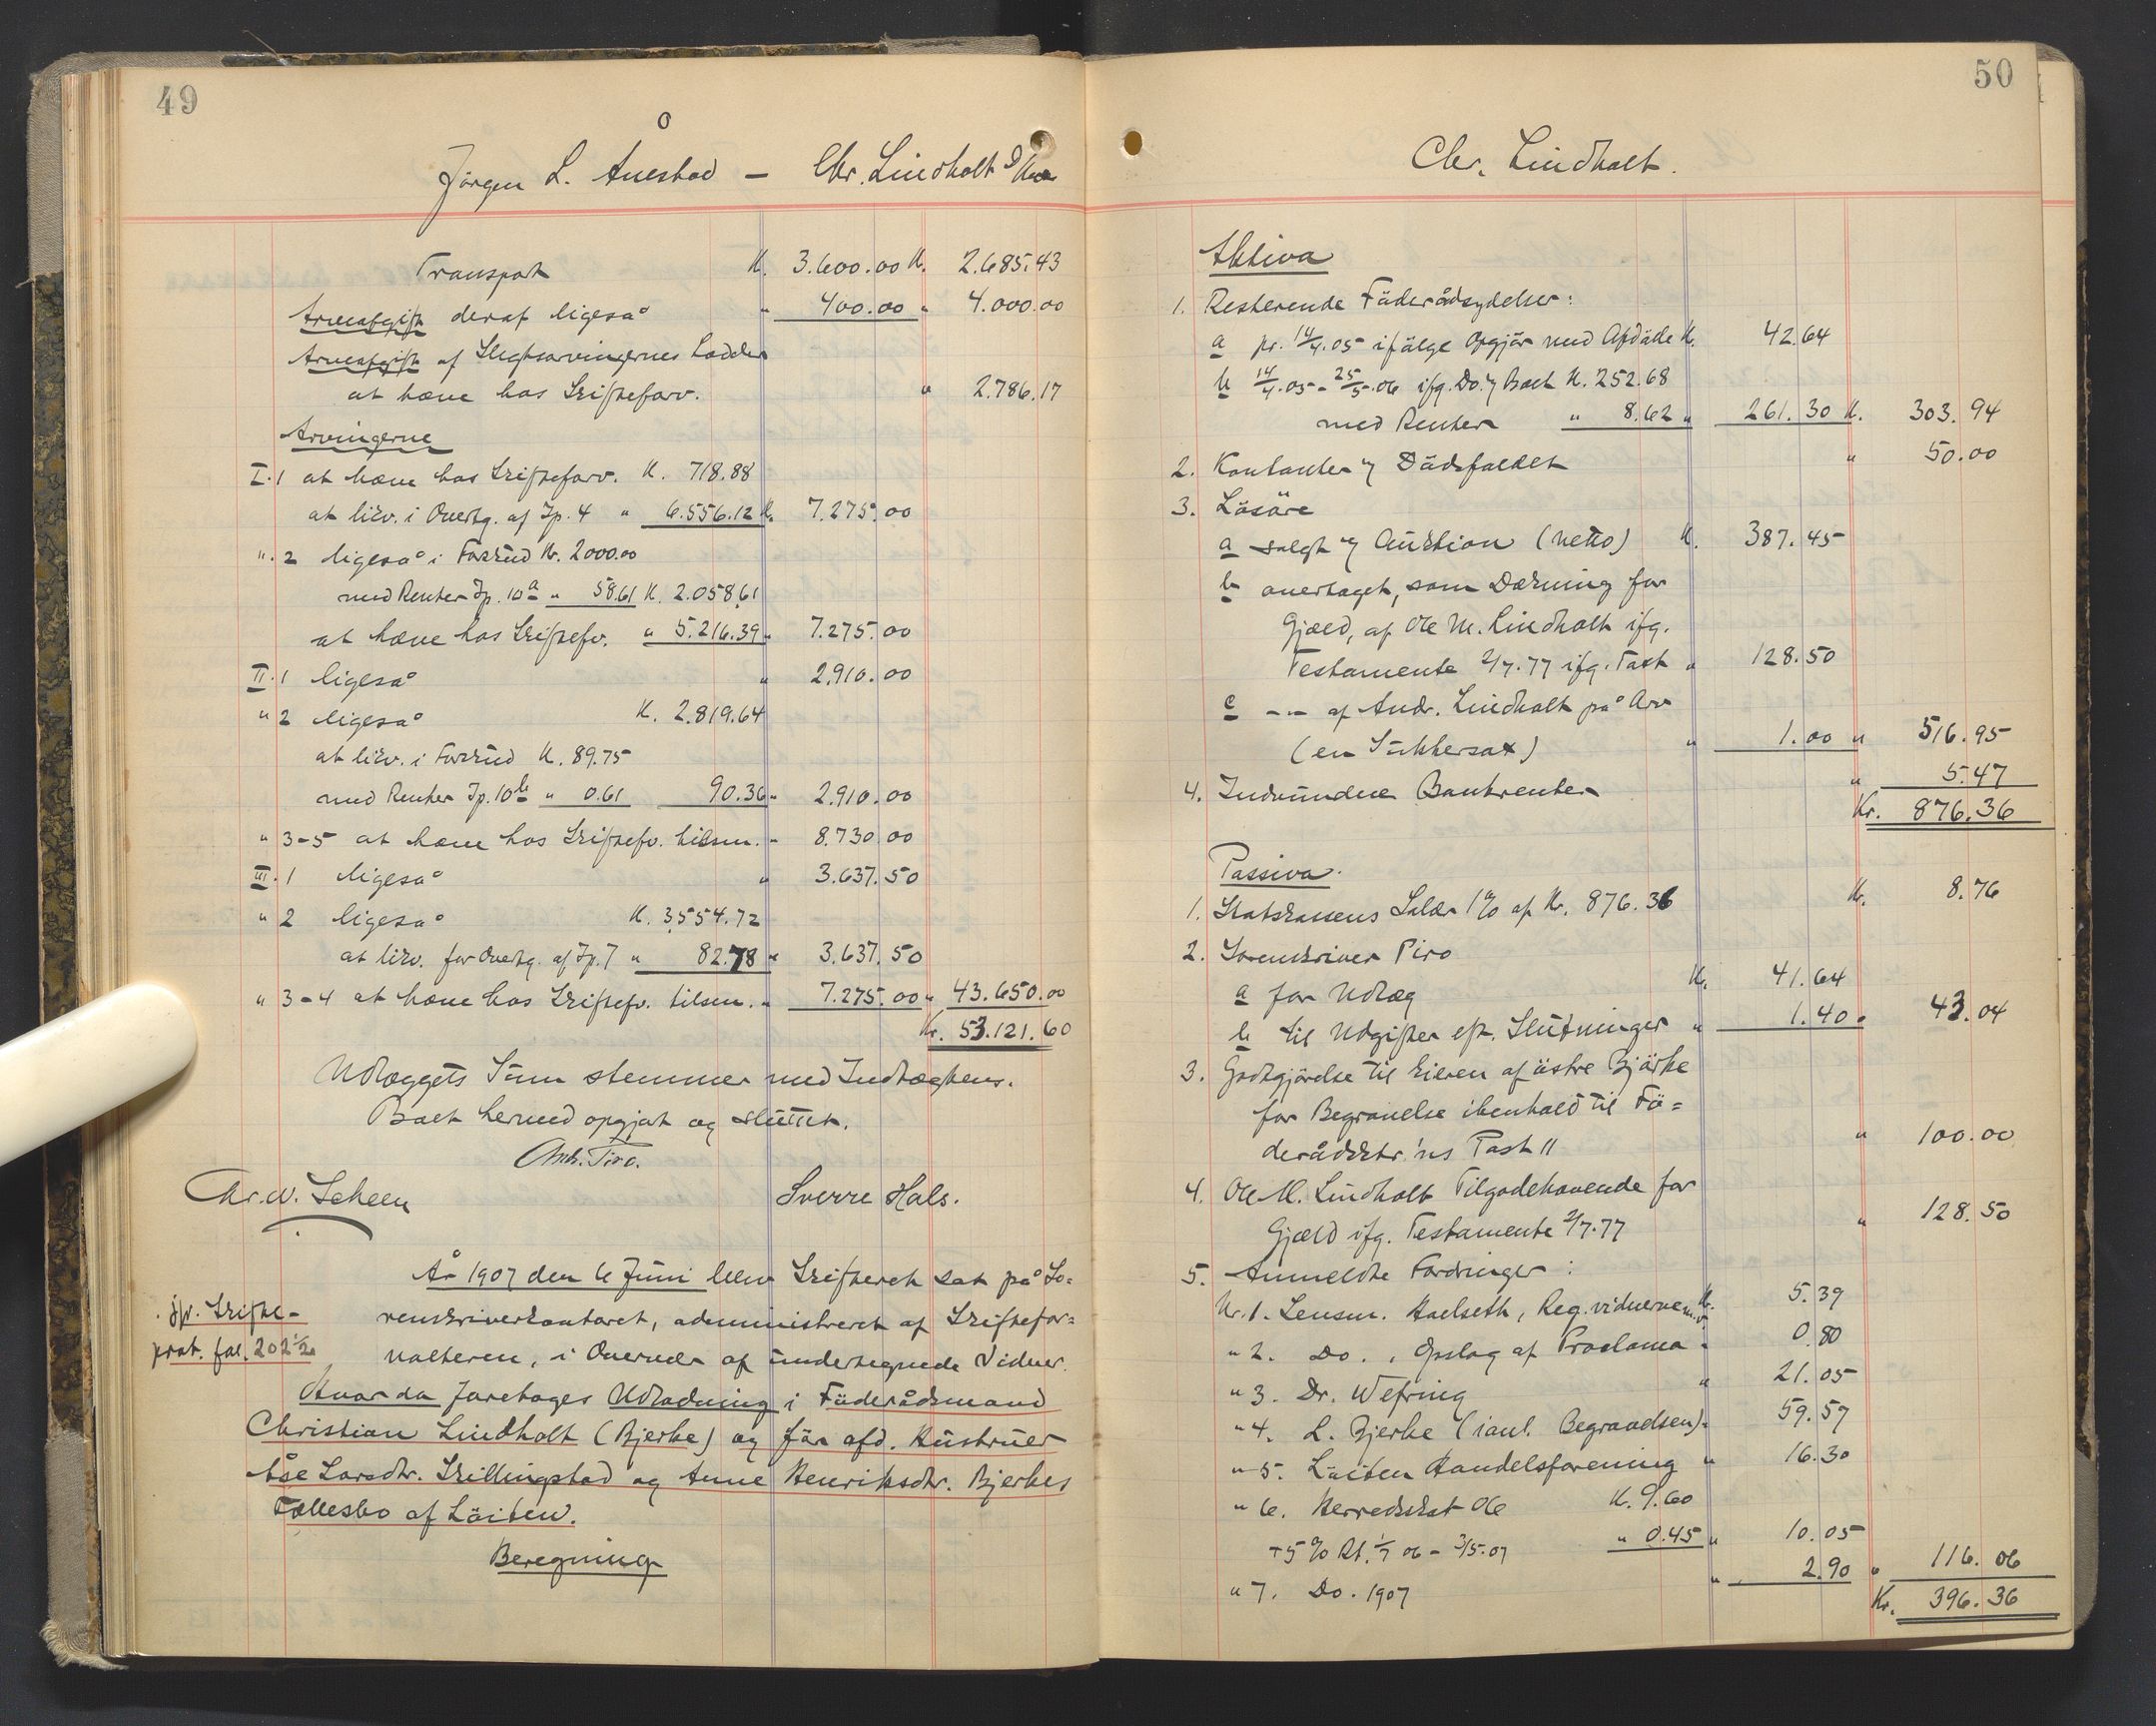 49
Jörgen L. Åuestad — Chr. Lindholt
Transport K. 3.600.00 K. 2.685.43
Arveafgift deraf ligeså " 400.00 " 4.000.00
Arveafgift af Slegtsarvingernes Lodder
at hæve hos Skifteforv. " 2.786.17
Arvingerne
I.1 at hæve hos Skifteforv. K. 718.88
at likv. i Overtg. af Ip. 4 " 6.556.12 K. 7.275.00
". 2 ligeså i Forskud Kr. 2000.00
med Renter Ip. 10a " 58.61 K. 2.058.61
at hæve hos Skiftefv. " 5.216.39 " 7.275.00
II.1 ligeså " 2.910.00
" 2 ligeså K. 2.819.64
at likv. i Forskud K. 89.75
med Renter Ip. 10b " 0.61 90.36 " 2.910.00
" 3-5 at hæve hos Skiftefv. tilsm. " 8.730.00
III.1 ligeså " 3.637.50
" 2 ligeså K. 3.554.72
at likv. for Overtg. af Ip. 7 " 82.78 " 3.637.50
" 3-4 at hæve hos Skiftefv. tilsm. " 7.275.00 " 43.650.00
Kr. 53.121.60
Udlæggets Sum stemmer med Indtægtens.
Boet hermed opgjort og sluttet.
Anth. Piro.
Chr. W. Scheen Sverre Hals.
År 1907 den 6 Juni blev Skifteret sat på So=
jfr. Skifte-
prot. fol. 202 1/2
renskriverkontoret, administreret af Skiftefor=
valteren, i Overvær af undertegnede Vidner.
Hvor da foretoges Udlodning i Föderådsmand
Christian Lindholt (Bjerke) og för afd. Hustruer
Åse Larsdtr. Skillingstad og Anne Henriksdtr. Bjerkes
Fællesbo af Löiten.
Beregning
50
Chr. Lindholt.
Aktiva
1. Resterende Föderådsydelser:
a pr. 14/4.05 ifölge Opgjör med Afdöde K. 42.64
b 14/4.05 - 25/5.06 ifg. Do. v/ Boet K. 252.68
med Renter " 8.62 " 261.30 K. 303.94
2. Kontanter v/ Dödsfaldet " 50.00
3. Lösöre
a solgt v/ Auktion (netto) K. 387.45
b overtaget, som Dækning for
Gjæld, af Ole M. Lindholt ifg.
Testamente 2/7.77 ifg. Takst " 128.50
c -"- af Andr. Lindholt på Arv
(en Sukkersax) " 1.00 " 516.95
4. Indvundne Bankrenter " 5.47
Kr. 876.36
Passiva.
1. Statskassens Salær 1% af Kr. 876.36 Kr. 8.76
2. Sorenskriver Piro
a for Udlæg K. 41.64
b til Udgifter eft. Slutninger " 1.40 " 43.04
3. Godtgjörelse til Eieren af östre Bjärke
for Begravelse ihenhold til Fö=
derådsktr.'ns Post 11 " 100.00
4. Ole M. Lindholt Tilgodehavende for
Gjæld ifg. Testamente 2/7.77 " 128.50
5. Anmeldte Fordringer:
Nr. 1. Lensm. Hoelseth, Reg. vidnerne m.v. K. 5.39
" 2. Do., Opslag af Proclama " 0.80
" 3. Dr. Wefring " 21.05
" 4. L. Bjerke (ianl. Begravelsen) " 59.57
" 5. Löiten Handelsforening " 16.30
" 6. Herredskat 06 K. 9.60
+ 5% Rt. 1/7 06 - 3/5.07 " 0.45 " 10.05
" 7. Do. 1907 " 2.90 " 116.06
Kr. 396.36